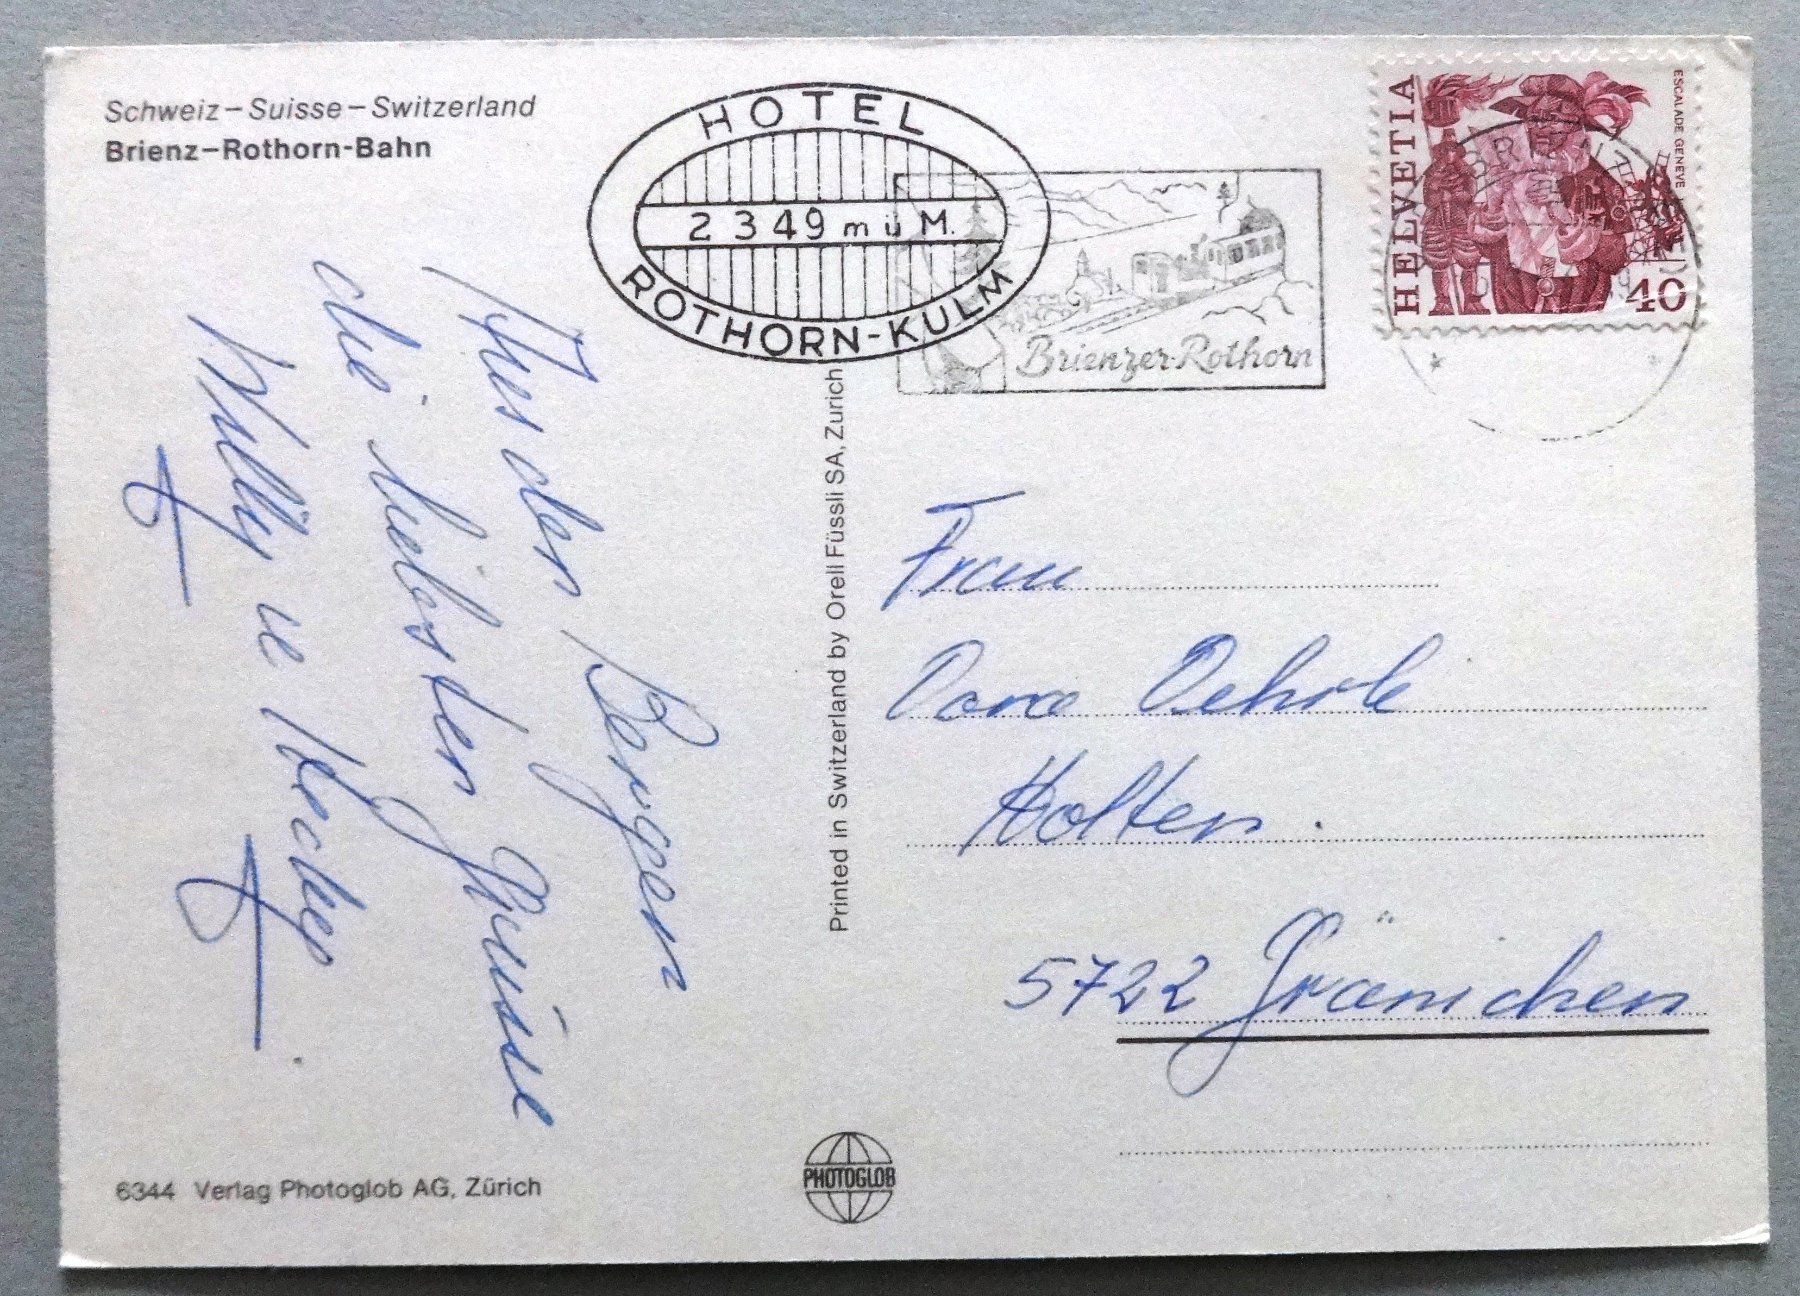 Schweiz – Suisse – Switzerland
Brienz–Rothorn-Bahn
HOTEL
2349 m ü M.
ROTHORN-KULM
Brienzer-Rothorn
HELVETIA
ESCALADE GENÈVE
40
BRIENZ
Aus den Bergen
die liebsten Grüsse
Willy u
Printed in Switzerland by Orell Füssli SA, Zurich
Frau
Dora Oehrle
Holten
5722 Gränichen
6344 Verlag Photoglob AG, Zürich
PHOTOGLOB